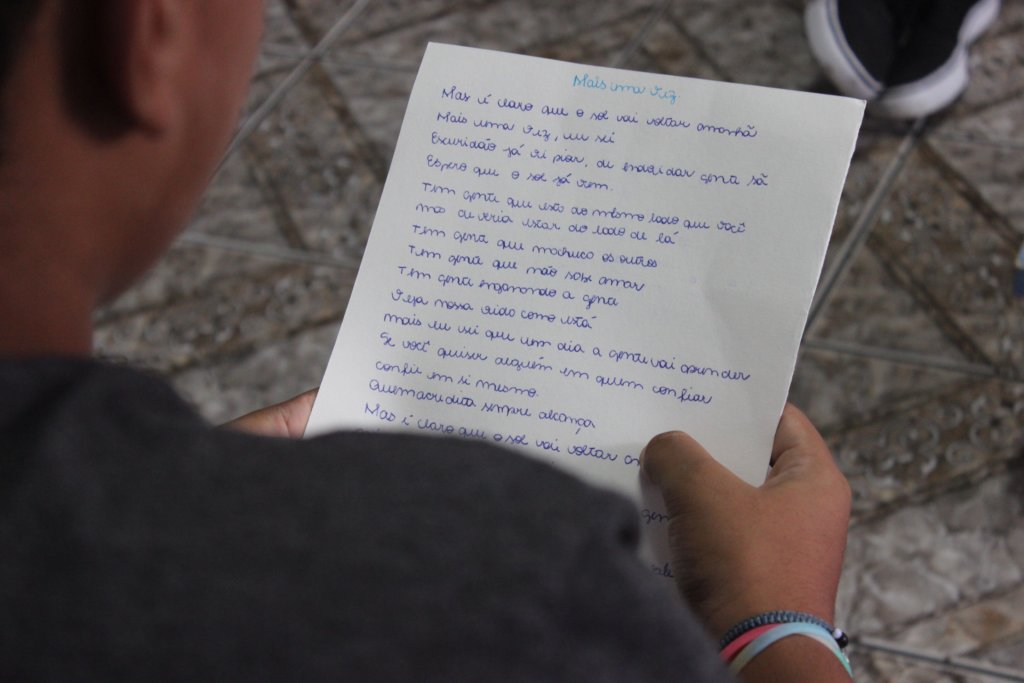 Mais uma vez
Mas é claro que o sol vai voltar amanhã
Mais uma vez, eu sei
Escuridão já vi pior, de endoidar gente sã
Espero que o sol já vem.
Tem gente que está do mesmo lado que você
mas deveria estar do lado de lá
Tem gente que machuca os outros
Tem gente que não sabe amar
Tem gente enganando a gente
Veja nossa vida como está
mais eu sei que um dia a gente vai aprender
Se você quiser alguém em quem confiar
confie em si mesmo.
Quem acredita sempre alcança
Mas é claro que o sol vai voltar am